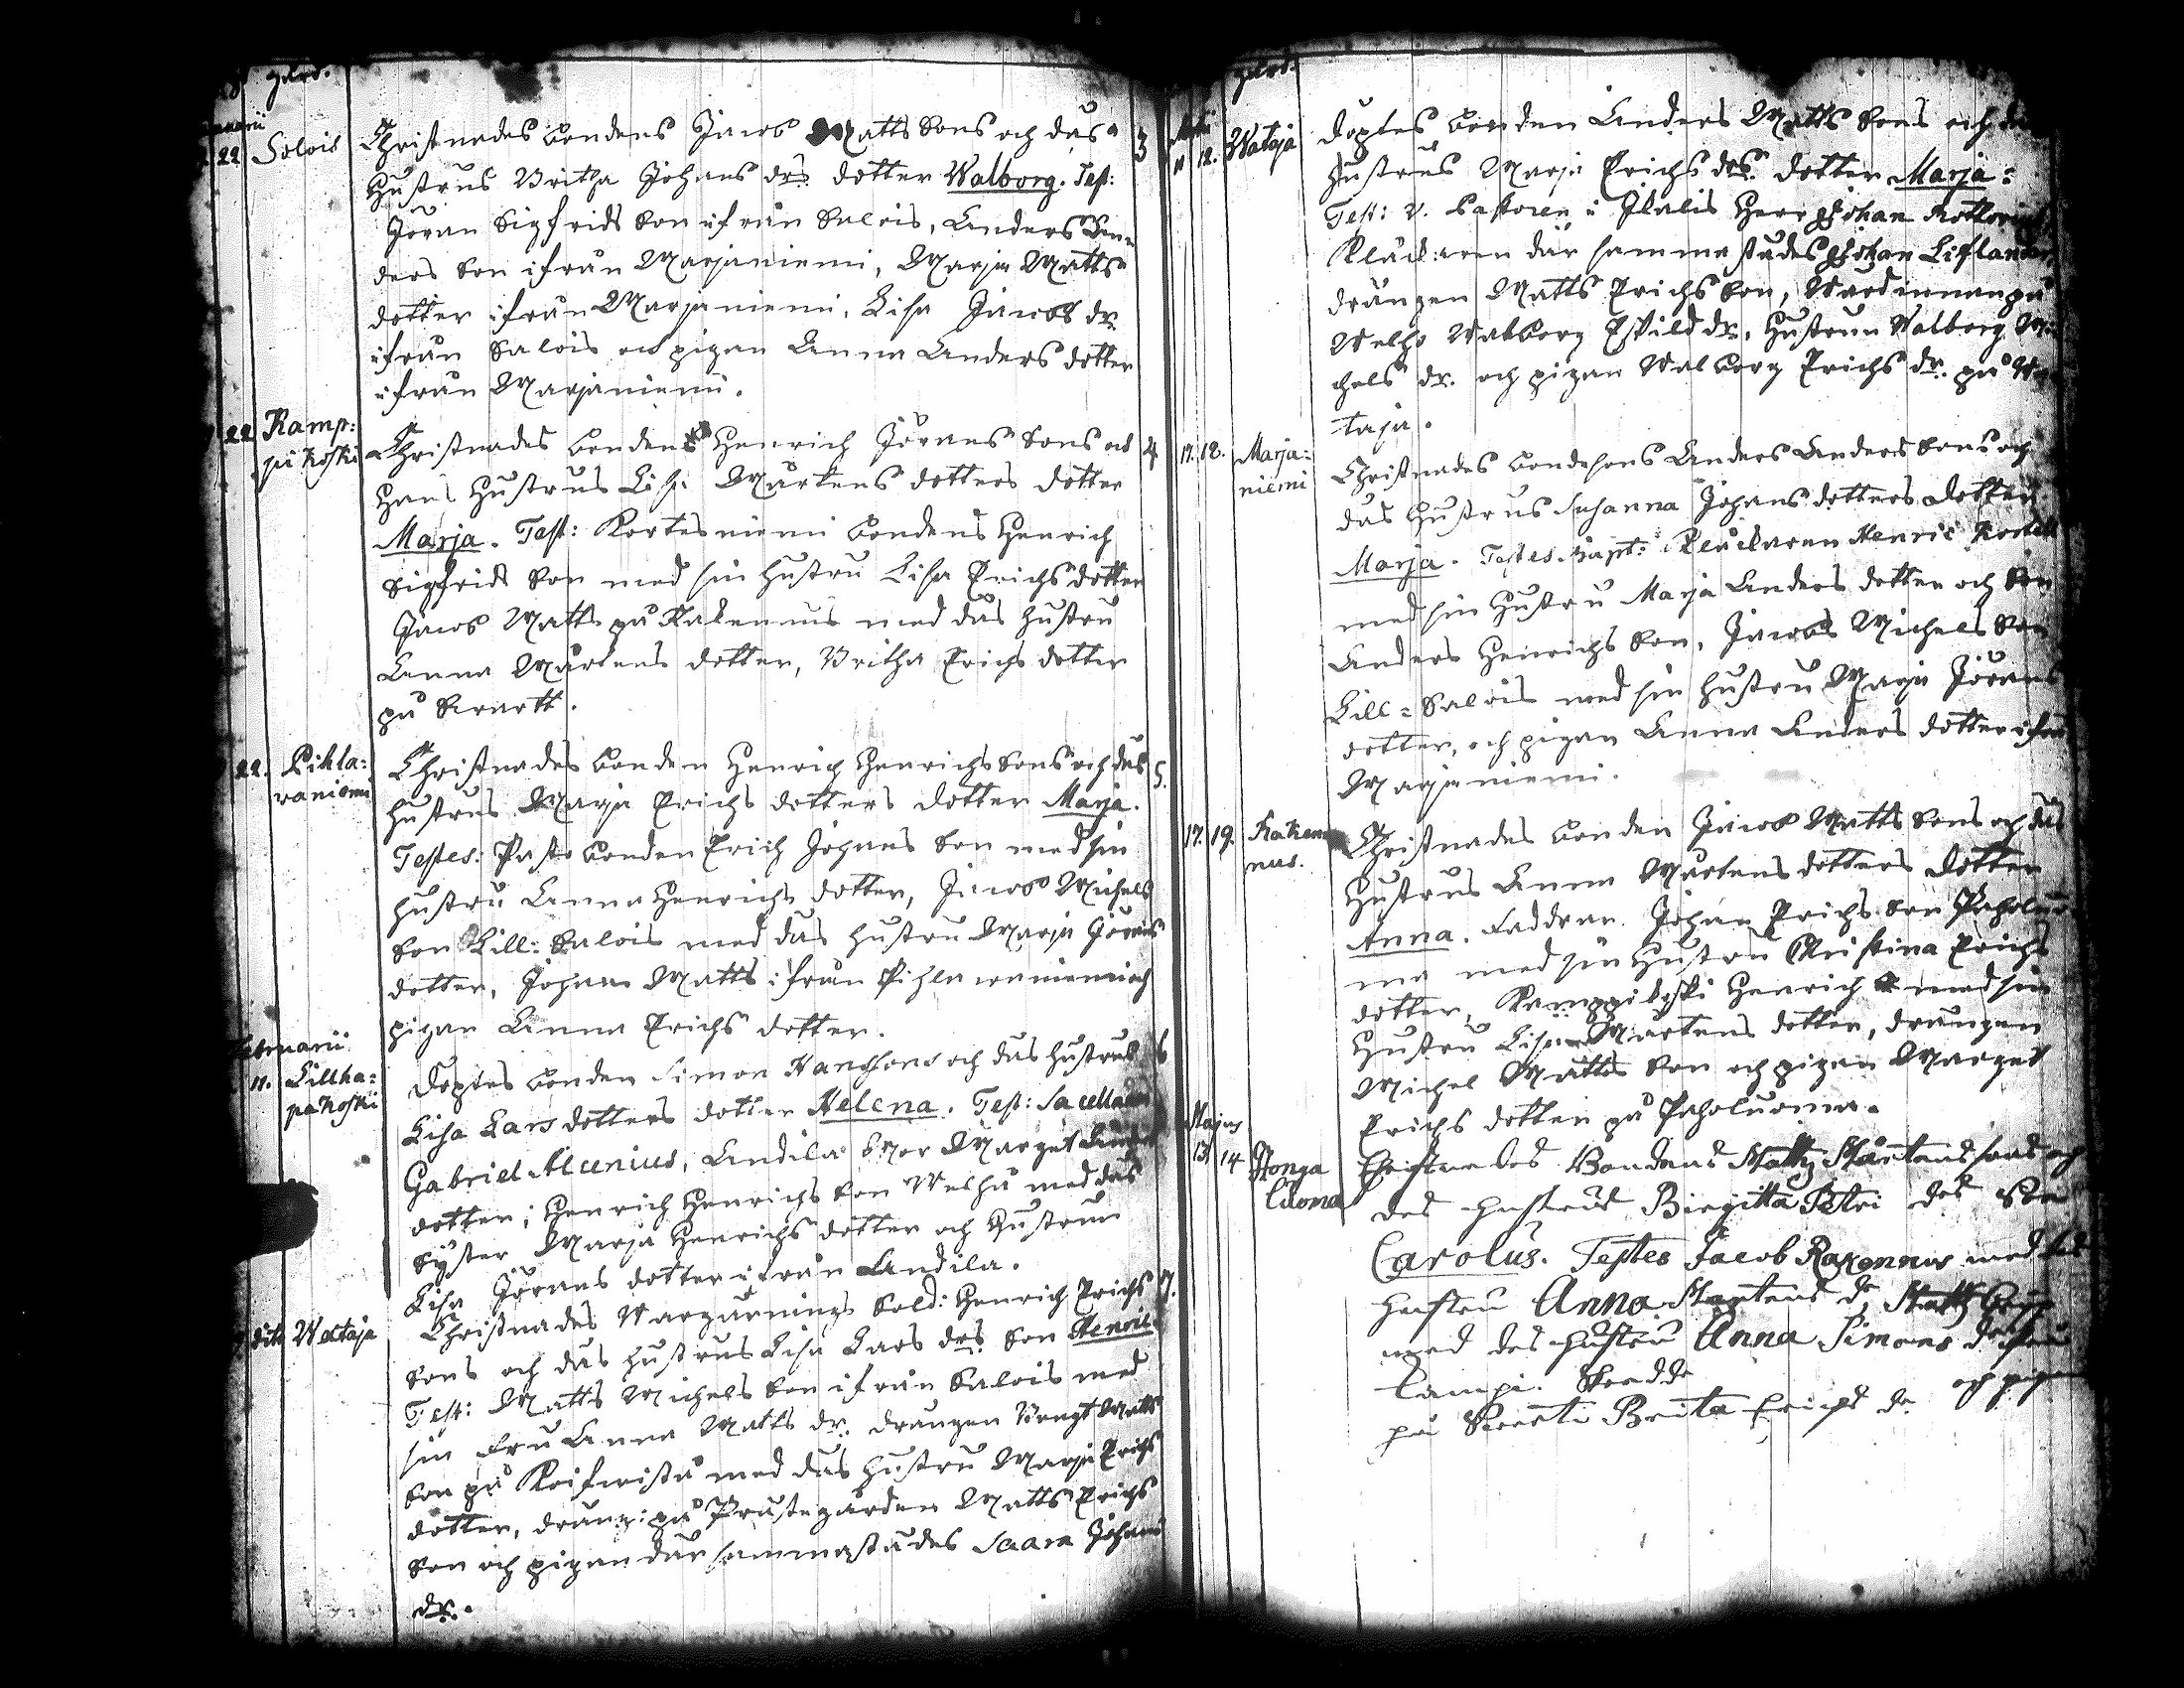 gård.
22 Salois Christnades bondens Jacob Matts Sons och dās
Hustrus Britha Johans drs dotter Walborg. Test:
Jöran Sigfrids Son ifrån Salois, Anders An
ders Son ifrån Marjaniemi, Marja Matts
dotter ifrån Marjaniemi, Lisa Jacobs dr.
ifrån Salois och pigan Anna Anders dotter
ifrån Marjaniemi.
3
22 Kamp:
pi koski
Christnades bondens Henrich Jörans Sons och
Hans Hustrus Lisa Mårtens dotters dotter
Marja. Test: Kortesniemi bondens Henrich
Sigfrids Son med sin hustru Lisa Erichs dotter
Jacob Matts på Kakennus med dās hustru
Anna Mårtens dotter, Britha Erichs dotter
på
4
22. Pihla:
vaniemi
Christnades bonden Henrich Henrichs Sons och dās
hustrus Marja Erichs dotters dotter Marja.
Testes: Pasto bonden Erich Johans Son med sin
hustru Anna Henrichs dotter, Jacob Michels
Son Lill: Salois med dās hustru Marja Görans
dotter, Johan Matts ifrån Pihlavaniemi och
pigan Anna Erichs dotter.
5.
Februarii
11. Lillha:
pakoski
Döptes bonden Simon Hanssons och dās hustrus
Lisa Lars dotters dotter Helena. Test: Sacellan
Gabriel Alcenius, Andila Mor Marget
dotter; Henrich Henrichs Son Welhu med dās
Syster Marja Henrichs dotter och Hustrun
Lisa Jörans dotter ifrån Andila.
6
dito Wataja
Christnades Wargärnings Sold: Henrich Erichs
Sons och dās hustrus Lisa Lars drs Son Henric.
Test: Matts Michels Son ifrån Salois med
sin fru Anna Matts dr. drängen Bengt Matts
Son på Koifwistå med dās hustru Marja Erichs
dotter, dräng: på Prästegården Matts Erichs
Son och pigan där sammastädes Saara Johans
dr.
7.
gård.
11 12. Wataja
Döptes bonden Anders Matts Sons och
hustrus Marja Erichs drs. dotter Marja:
Test: V. Pastoren i Ilalis Herr Johan
Klåckaren där sammastädes Johan Liflander,
drängen Matts Erichs Son, Wärdinnan på
Welho Walborg Eskild dr., hustrun Walborg Mi
chels dr. och pigan Walborg Erichs dr. på Wa
taja.
17. 18. Marja:
niemi
Christnades bondesons Anders Anders Sons och
dās Hustrus Susanna Johans dotters dotter
Marja. Testes Bapt: Klåckaren Henric
med sin Hustru Marja Anders dotter och Son
Anders Henrichs Son, Jacob Michels Son
Lill: Salois med sin hustru Marja Jörans
dotter, och pigan Anna Anders dotter ifrån
Marjaniemi.
17. 19. Kaken
nus.
Christnades bonden Jacob Matts Sons och dās
Hustrus Anna Mårtens dotters dotter
Anna. Faddrar. Johan Erichs Son Paholuo
ma med sin Hustru Christina Erichs
dotter, Kamppikoski Henrich med sin
Hustru Lisa Mårtens dotter, drängen
Michel Matts Son och pigan Marget
Erichs dotter på Paholuoma.
Majus
13 14 Honga
luoma
Christnades Bondens Matts Mårtens sons och
des hustrus Birgitta Petri drs Son
Carolus. Testes Jacob Kakennus med
hustru Anna Martens dr Matts
med des hustru Anna Simons dr
Lampi.
på Brita Erichs dr och pigan